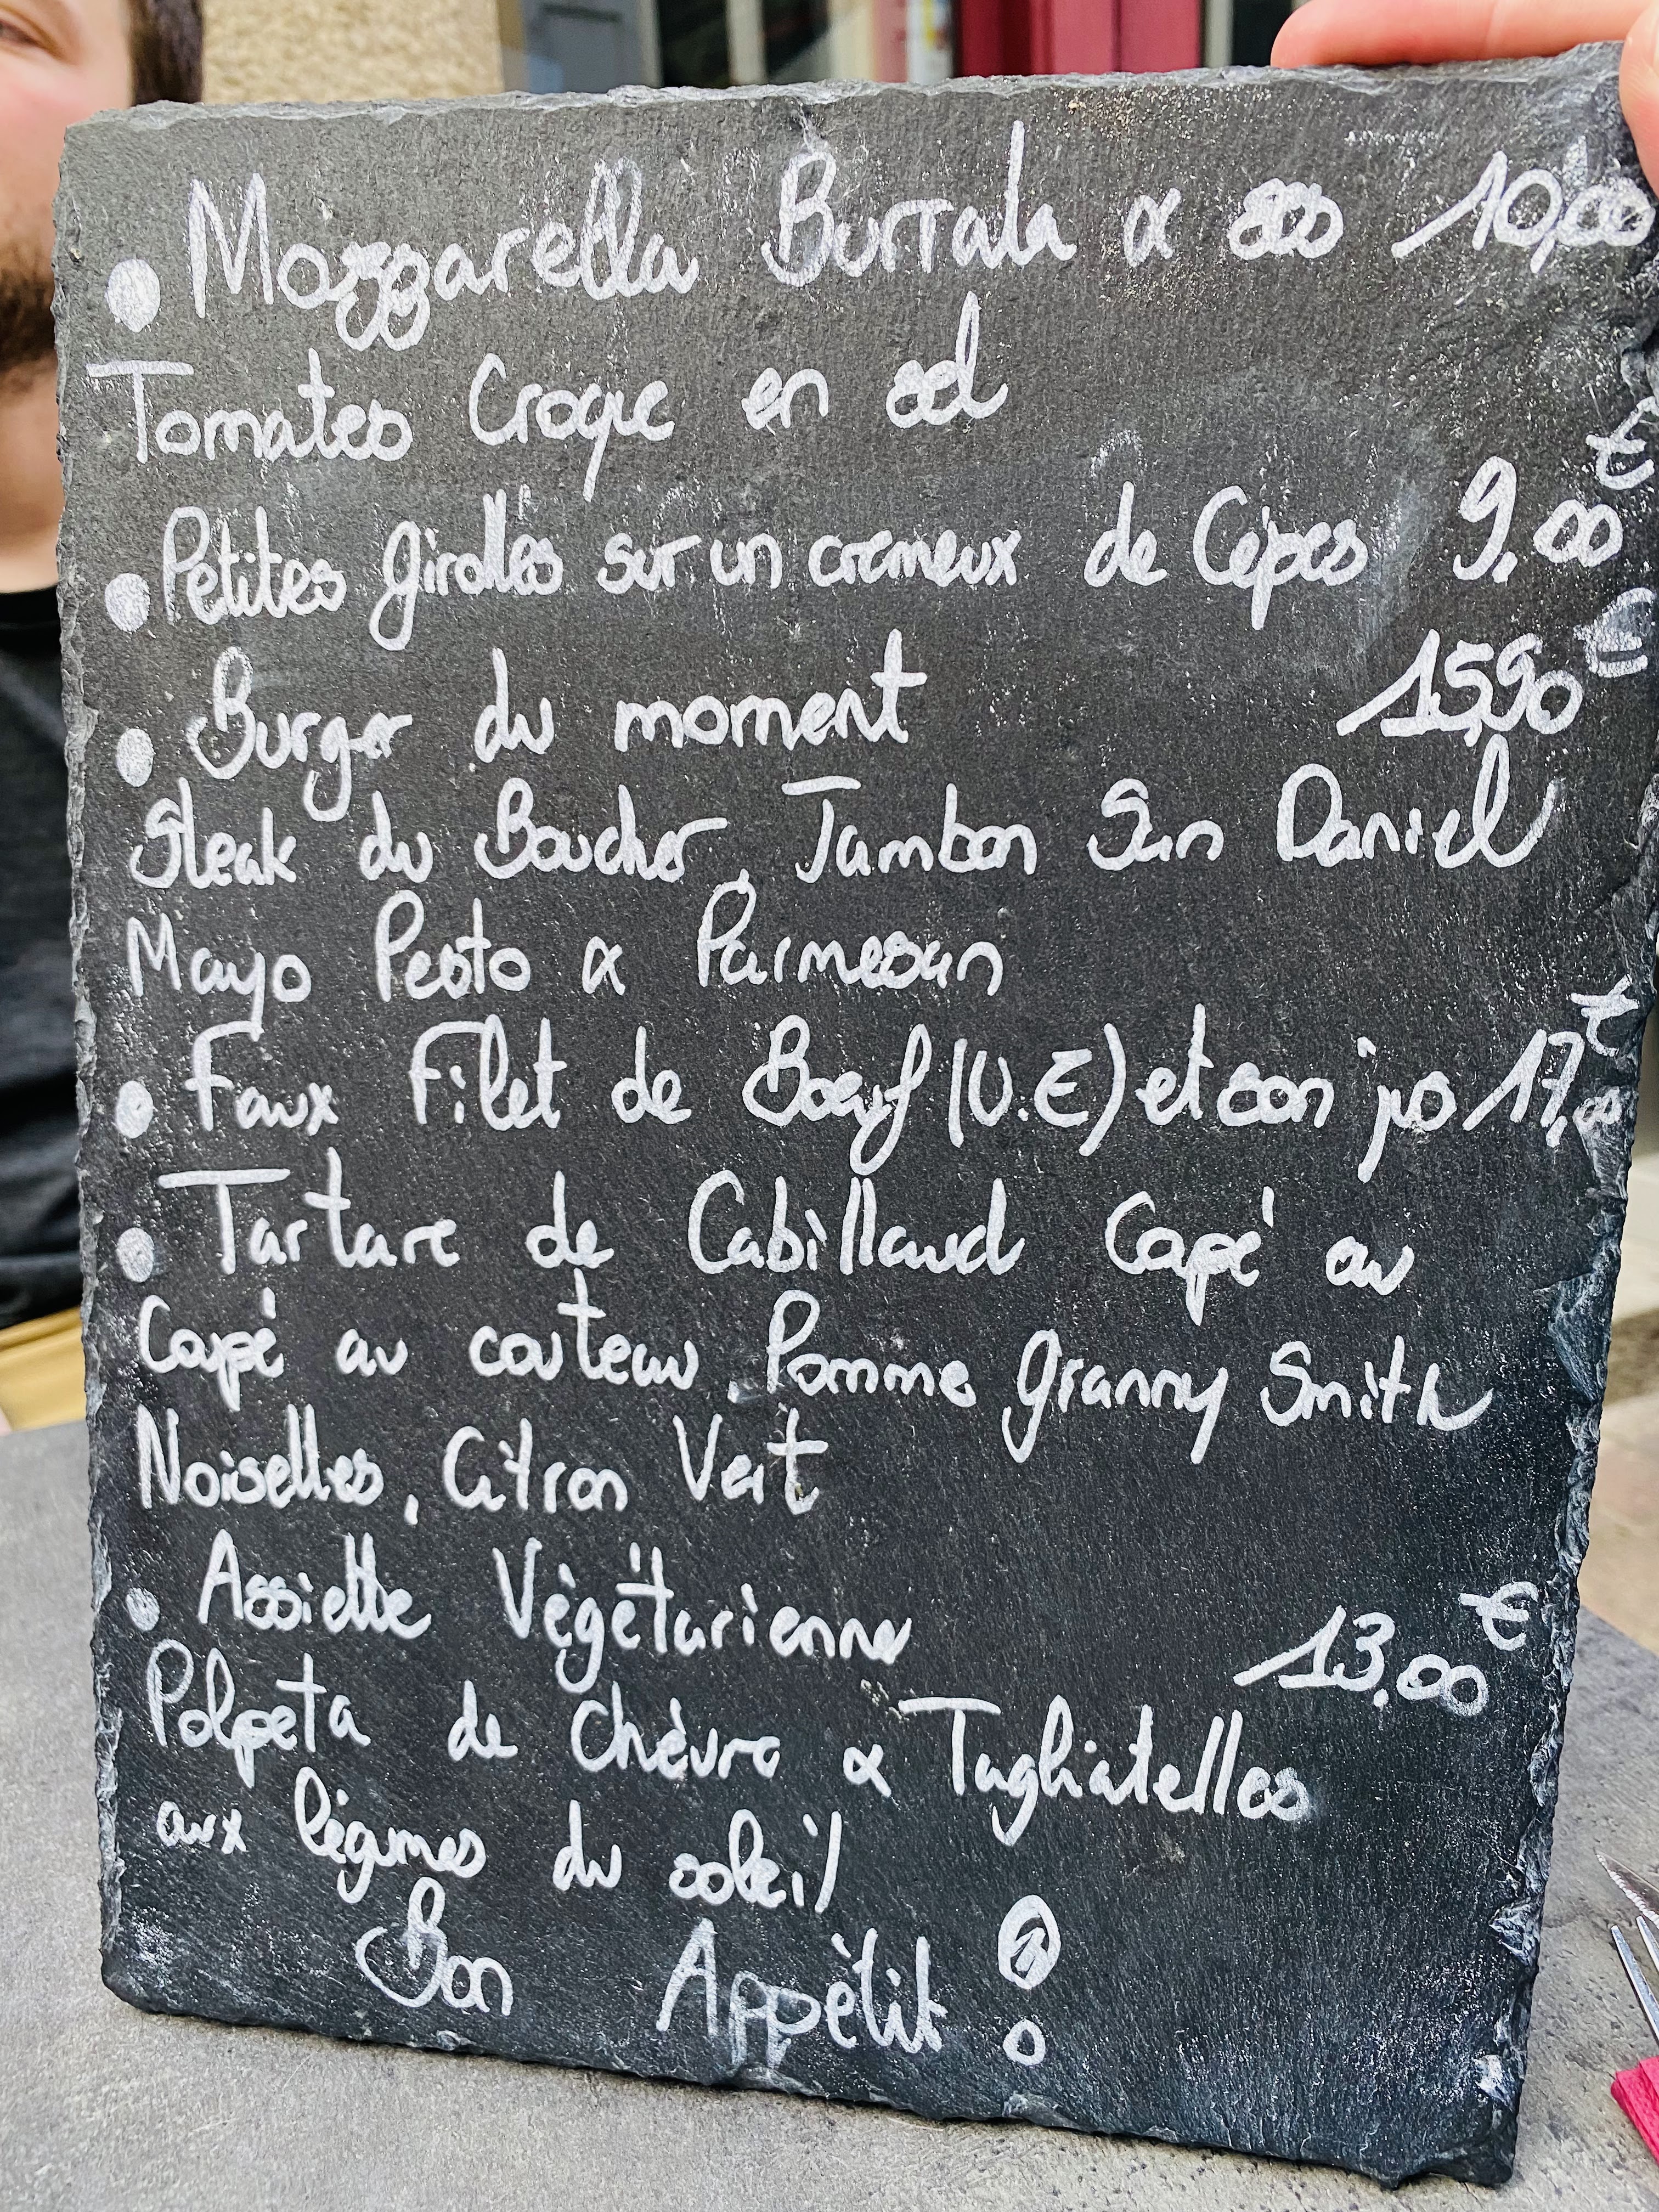 • Mozzarella Burrata & ses 10,00
Tomates Croque en sel
• Petites girolles sur un crémeux de Cèpes 9.00€
• Burger du moment 15,90€
Steak du Boucher, Jambon San Daniel
Mayo Pesto & Parmesan
• Faux Filet de Boeuf (U.E) et son jus 17,00€
• Tartare de Cabillaud Coupé au
Coupé au couteau, Pomme Granny Smith
Noisettes, Citron Vert
• Assiette Végétarienne 13.00€
Polpeta de Chèvre & Tagliatelles
aux légumes du soleil
Bon Appétit !